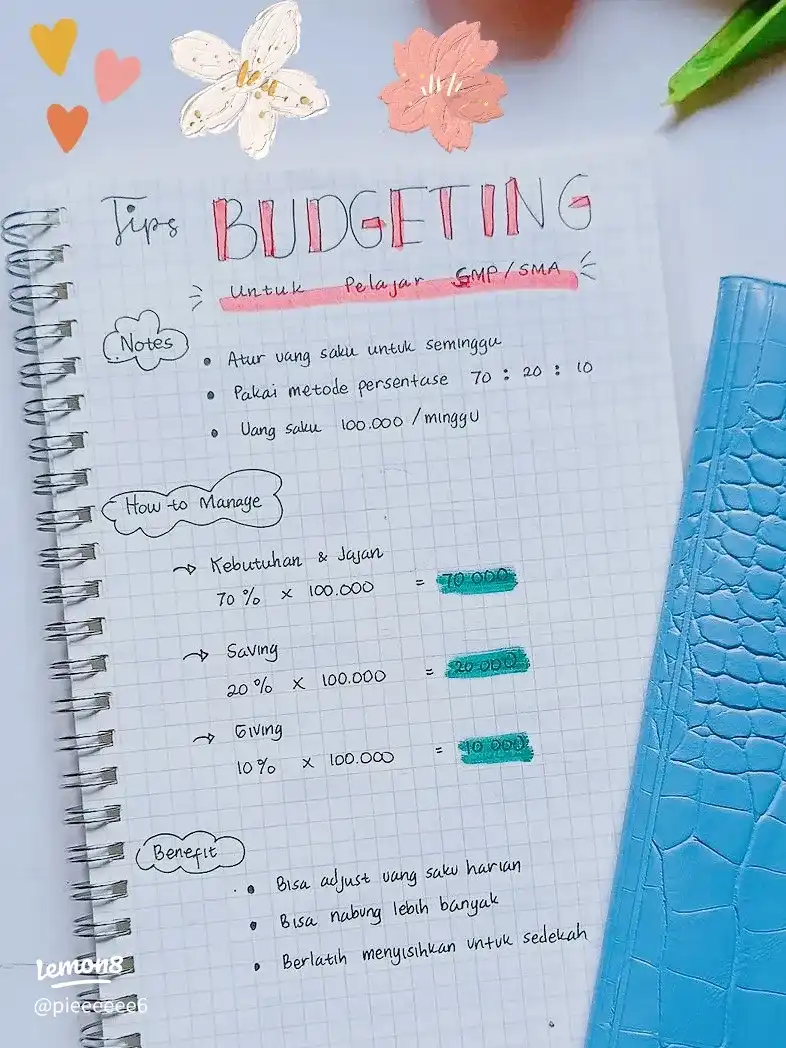 Tips BUDGETING
Untuk Pelajar SMP/SMA
Notes
• Atur uang saku untuk seminggu
• Pakai metode persentase 70 : 20 : 10
• Uang saku 100.000 / minggu
How to Manage
→ Kebutuhan & Jajan
70% x 100.000 = 70.000
→ Saving
20% x 100.000 = 20.000
→ Giving
10% x 100.000 = 10.000
Benefit
• Bisa adjust uang saku harian
• Bisa nabung lebih banyak
• Berlatih menyisihkan untuk sedekah
lemon8
@pieeeeeee6